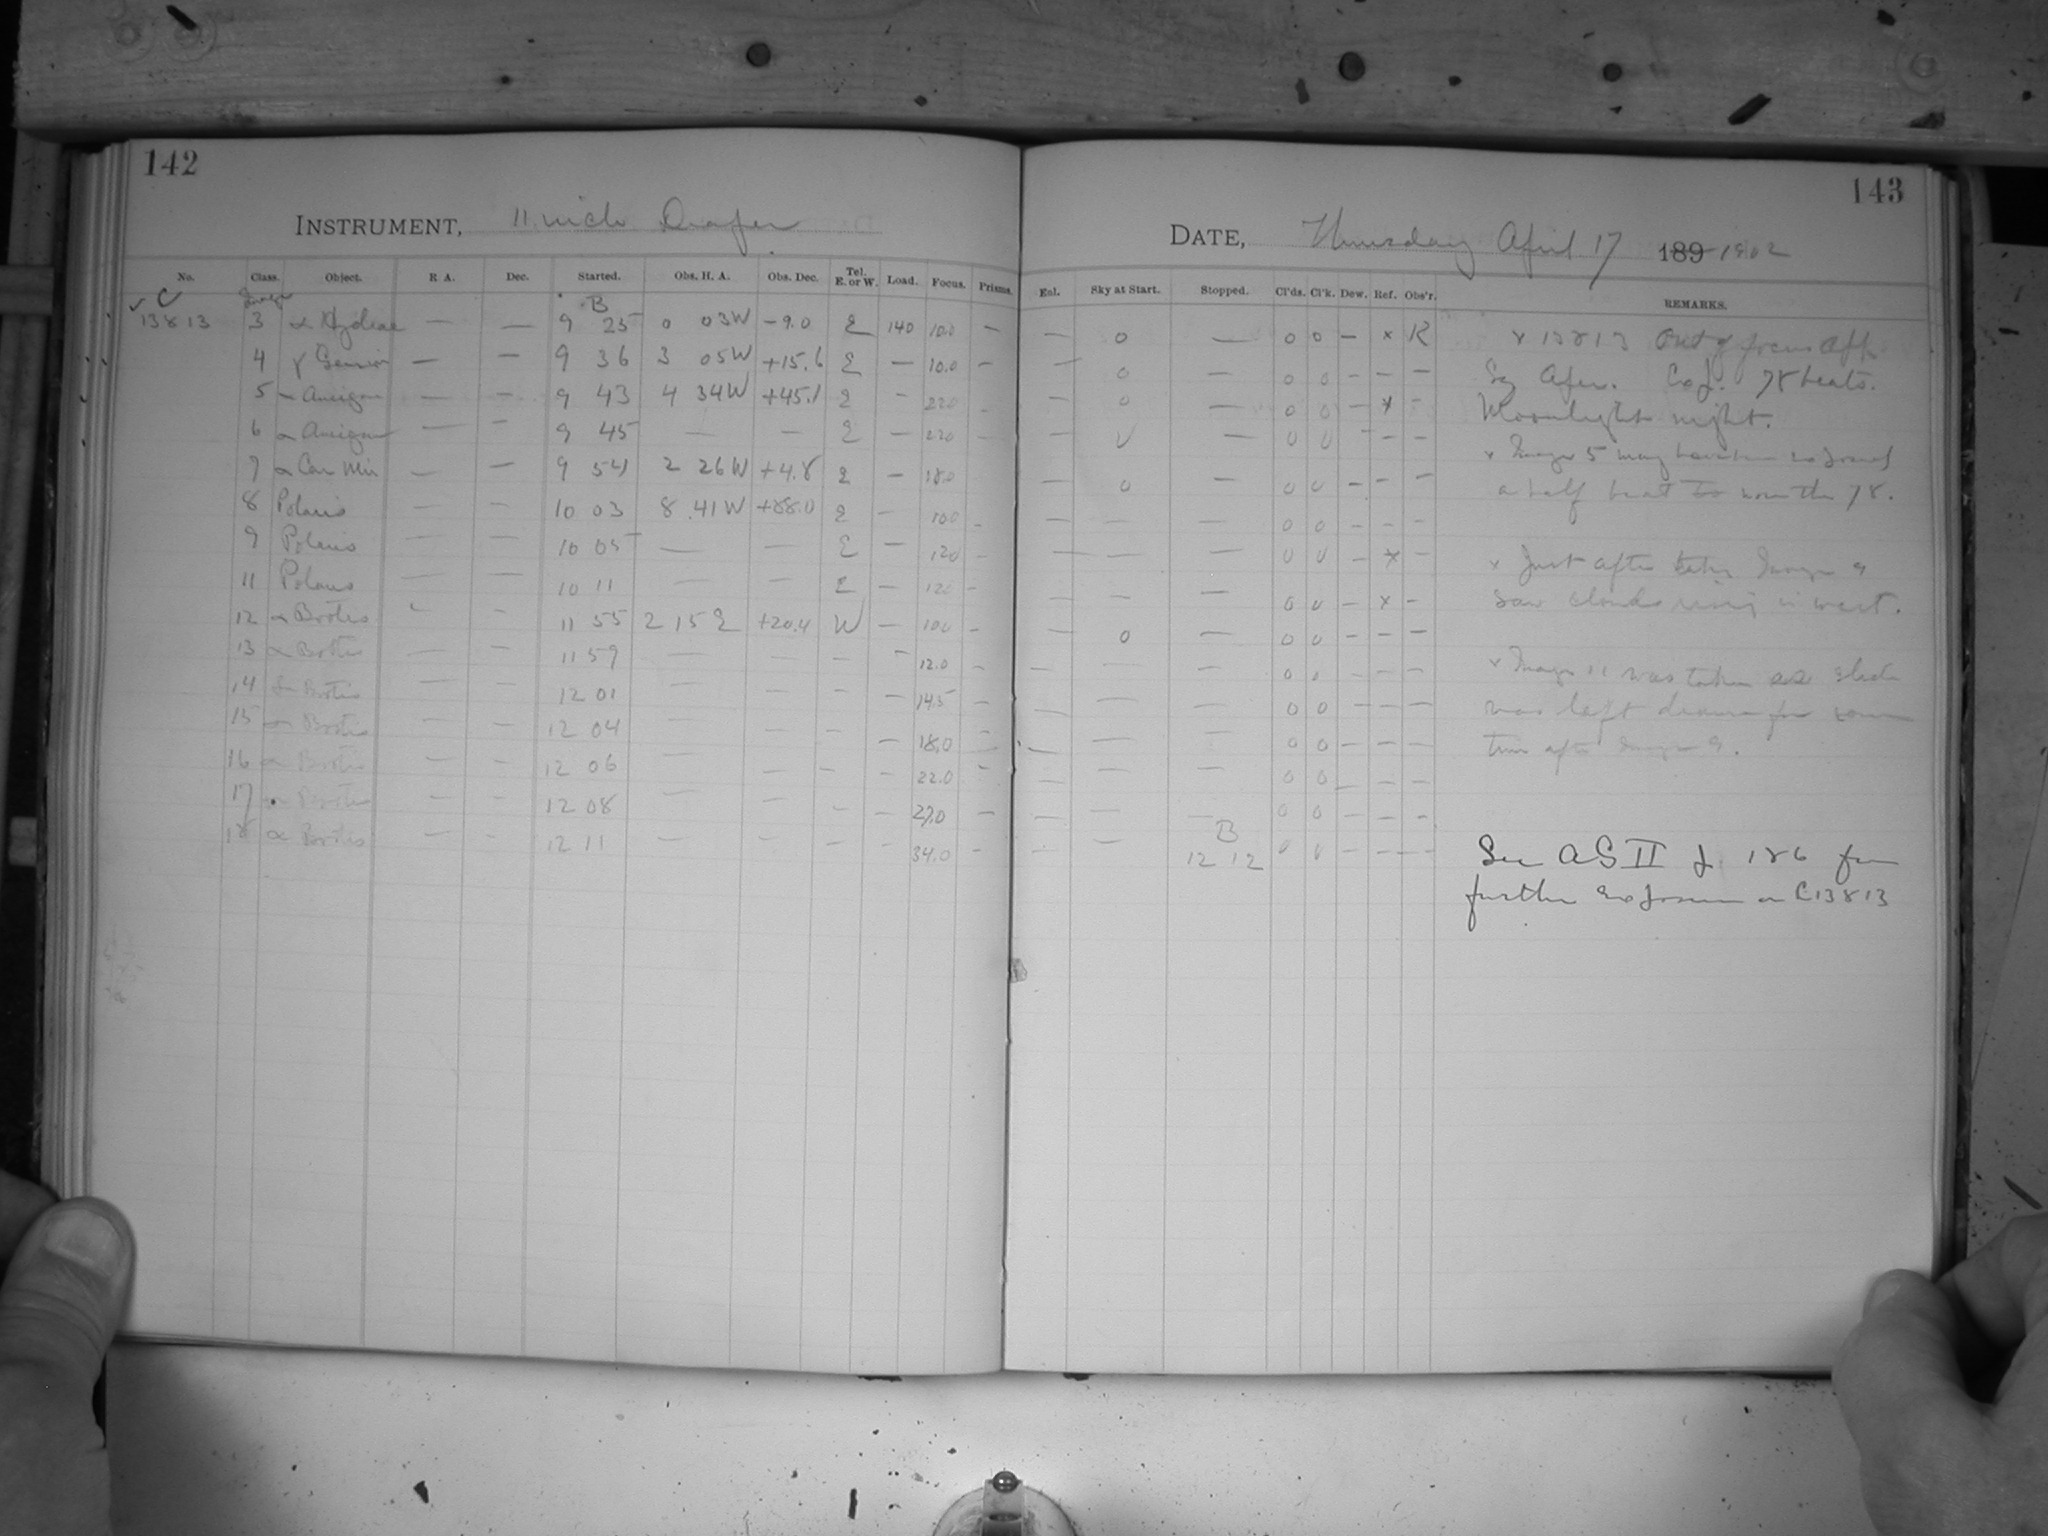 142
INSTRUMENT, 11 inch Draper
No. Class. Object. R A. Dec. Started. Obs. H. A. Obs. Dec. Tel. E. or W. Load. Focus. Prisms.
C Image B
13813 3 α Hydrae — — 9 25 0 03W -9.0 E 140 10.0 —
4 γ Gemin — — 9 36 3 05W +15.6 E — 10.0 —
5 α Aurigae — — 9 43 4 34W +45.1 E — 22.0 —
6 α Aurigae — — 9 45 — — E — 22.0 —
7 α Can Min — — 9 54 2 26W +4.8 E — 18.0
8 Polaris — — 10 03 8 41W +88.0 E — 10.0 —
9 Polaris — — 10 05 — — E — 12.0 —
11 Polaris — — 10 11 — — E — 12.0 —
12 α Bootis - - 11 55 2 15 E +20.4 W — 10.0 —
13 α Bootis — — 11 59 — — — - 12.0 —
14 α Bootis — — 12 01 — — — — 14.5 —
15 α Bootis — — 12 04 — — — — 18.0 —
16 α Bootis — — 12 06 — — — — 22.0 —
17 α Bootis — — 12 08 — — — — 27.0 —
18 α Bootis — — 12 11 — — — — 34.0 —
143
DATE, Thursday April 17 189 1902
Enl. Sky at Start. Stopped. Cl'ds. Cl'k. Dew. Ref. Obs'r. REMARKS.
— 0 — 0 0 — x R
— 0 — 0 0 — — —
— 0 — 0 0 — x -
— — 0 0 — — —
— 0 — 0 0 — — —
— — — 0 0 — — —
— — — 0 0 — x —
— — — 0 0 — x —
— 0 — 0 0 — — —
B
12 12
x 13813 Out of focus
78 beats.
Moonlight night.
x Image 5 may have been exposed
a half beat to more than 78.
x Just after taking Image 9
saw clouds rising in west.
x Image 11 was taken as slide
was left drawn for some
time after Image 9.
See AS II p. 186 for
further exposures on C13813